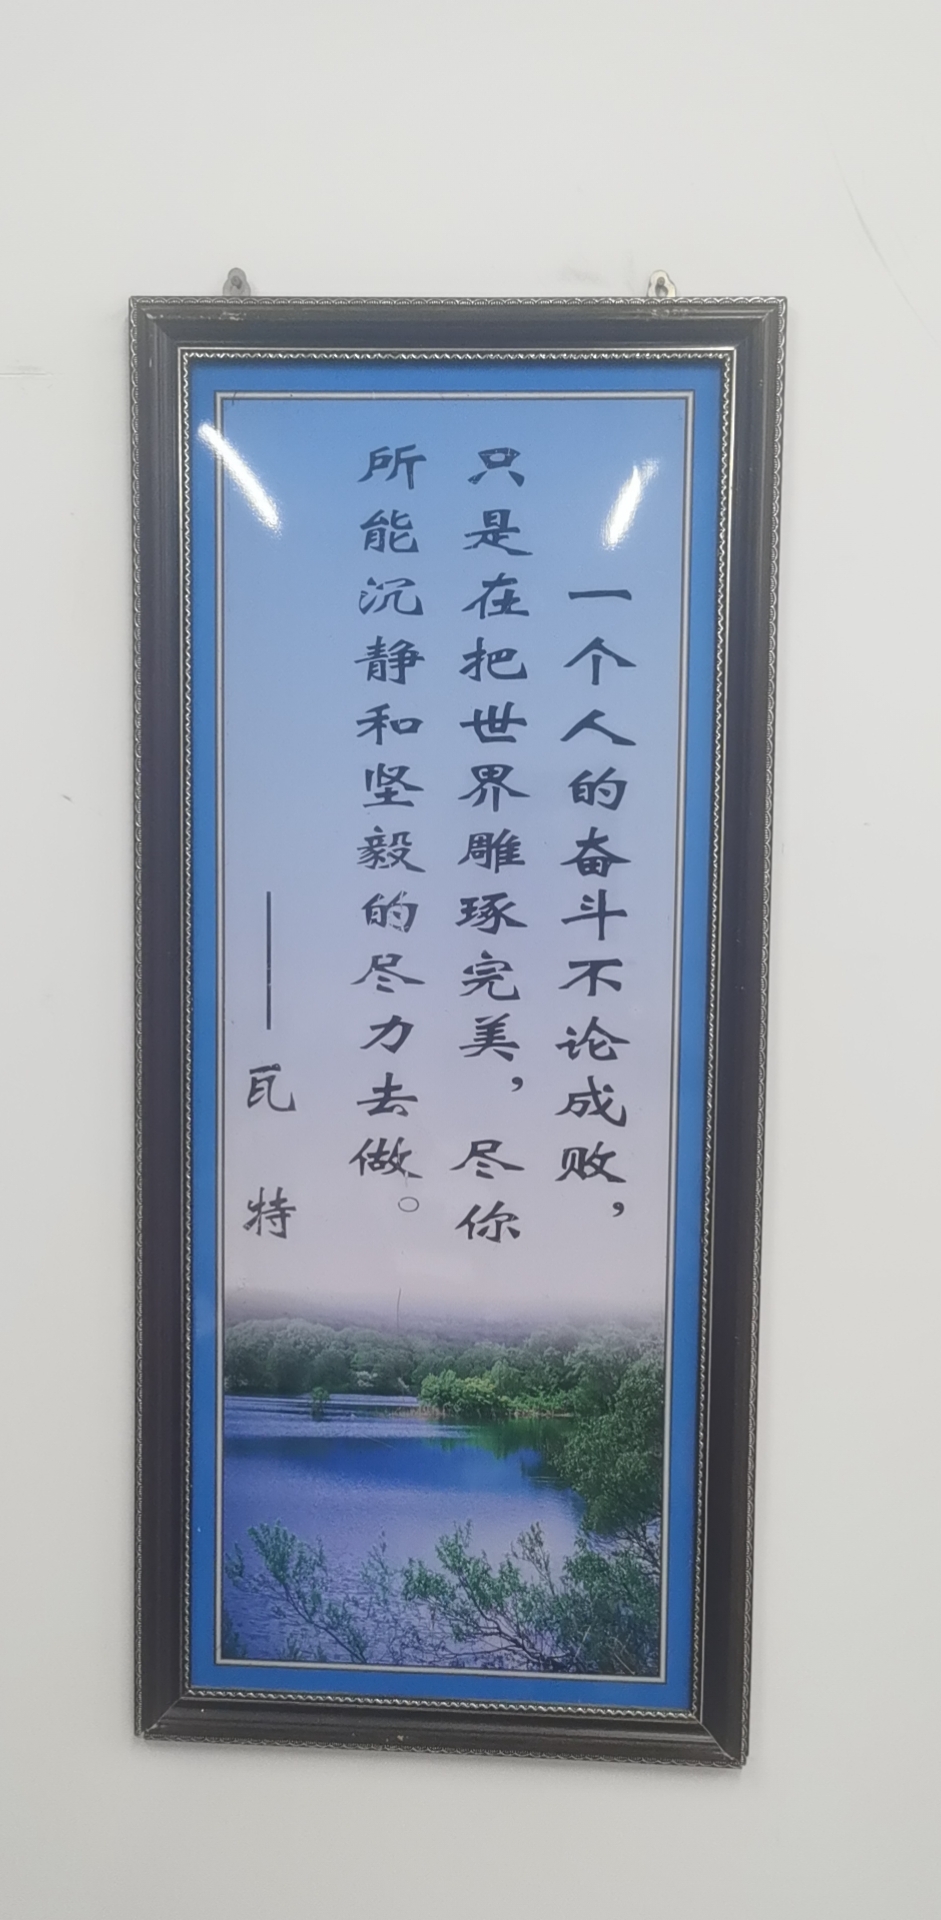 一个人的奋斗不论成败，
只是在把世界雕琢完美，尽你
所能沉静和坚毅的尽力去做。
——瓦特